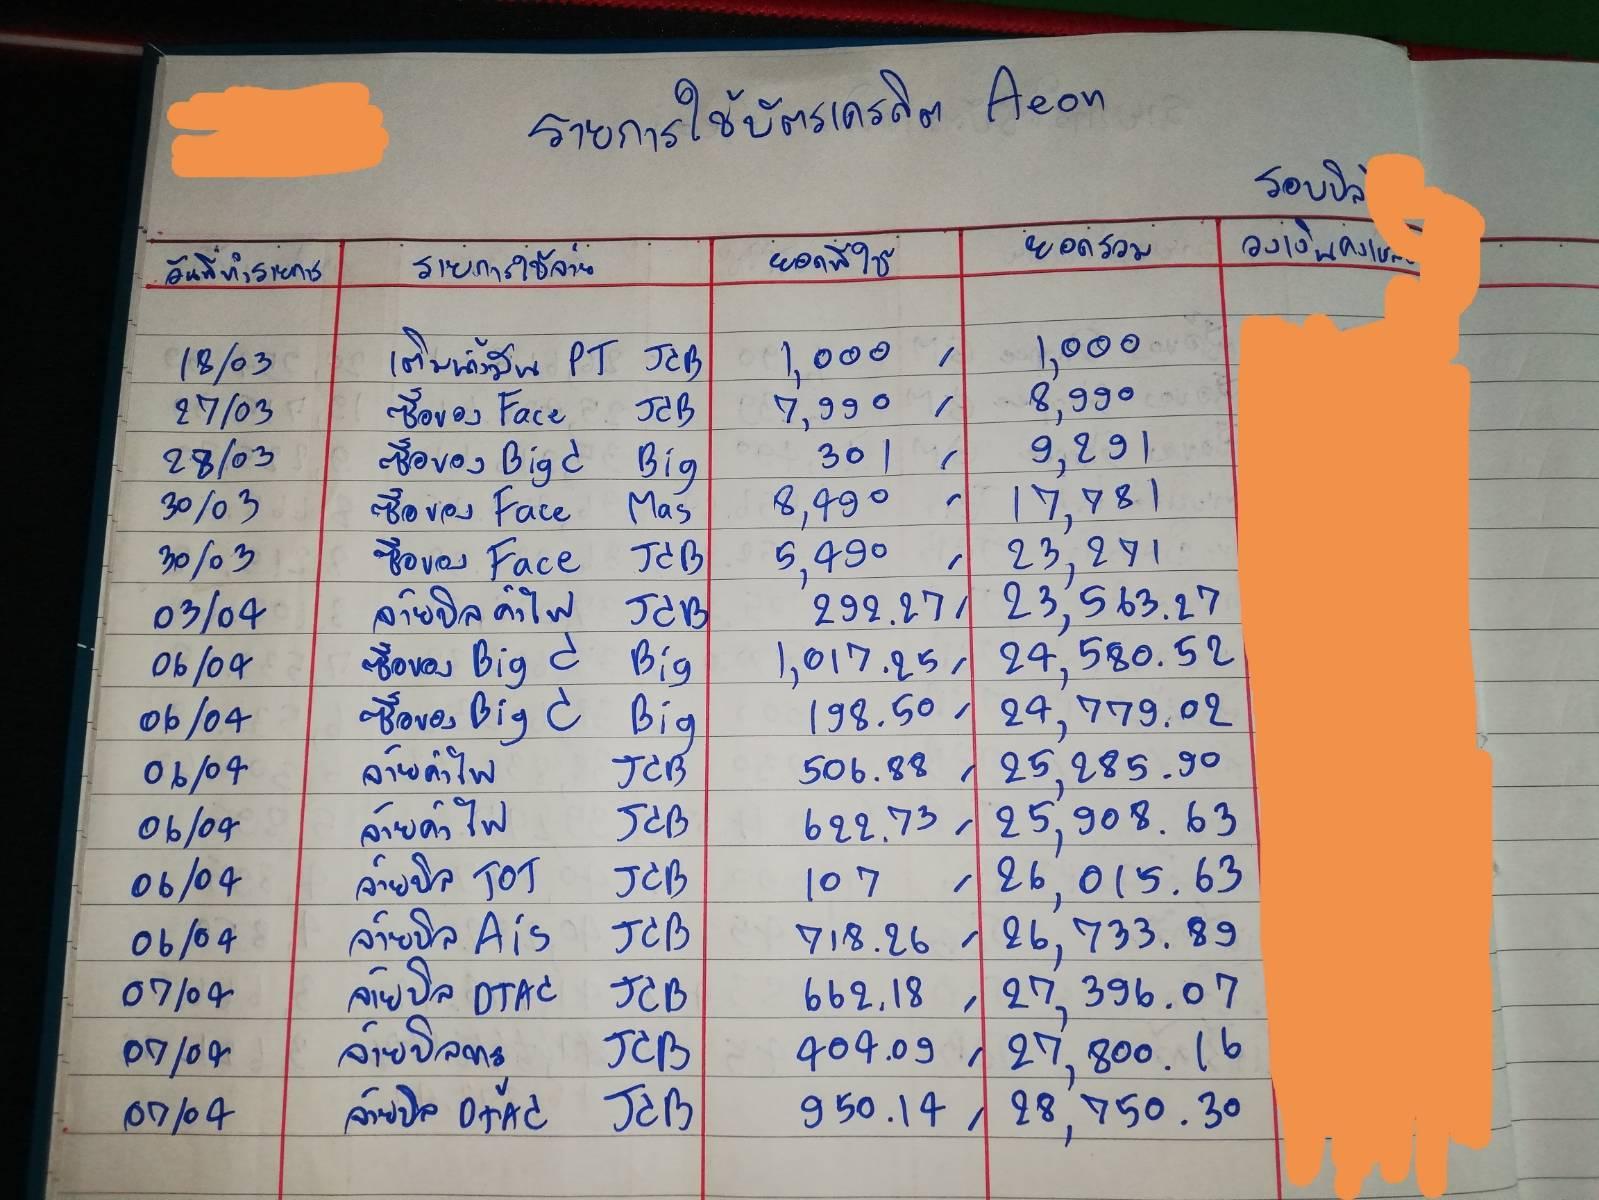 รายการใช้บัตรเครดิต Aeon
รอบบิล
วันที่ทำรายการ รายการใช้จ่าย ยอดที่ใช้ ยอดรวม วงเงินคงเหลือ
18/03 เติมน้ำมัน PT JCB 1,000 1,000
27/03 ซื้อของ Face JCB 7,990 8,990
28/03 ซื้อของ Big C Big 301 9,291
30/03 ซื้อของ Face Mas 8,490 17,781
30/03 ซื้อของ Face JCB 5,490 23,271
03/04 จ่ายบิลค่าไฟ JCB 292.27 23,563.27
06/04 ซื้อของ Big C Big 1,017.25 24,580.52
06/04 ซื้อของ Big C Big 198.50 24,779.02
06/04 จ่ายค่าไฟ JCB 506.88 25,285.90
06/04 จ่ายค่าไฟ JCB 622.73 25,908.63
06/04 จ่ายบิล TOT JCB 107 26,015.63
06/04 จ่ายบิล Ais JCB 718.26 26,733.89
07/04 จ่ายบิล DTAC JCB 662.18 27,396.07
07/04 จ่ายบิล JCB 404.09 27,800.16
07/04 จ่ายบิล DTAC JCB 950.14 28,750.30